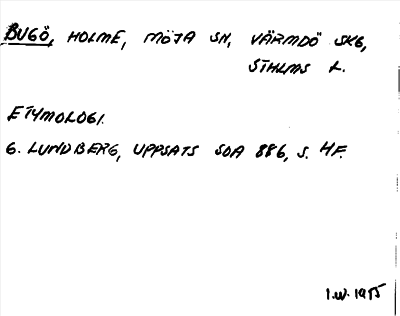 BUGÖ, HOLME, MÖJA SN, VÄRMDÖ SKG,
STHLMS L.
ETYMOLOGI.
G. LUNDBERG, UPPSATS SOA 886, S. 4F.
I.W. 1955